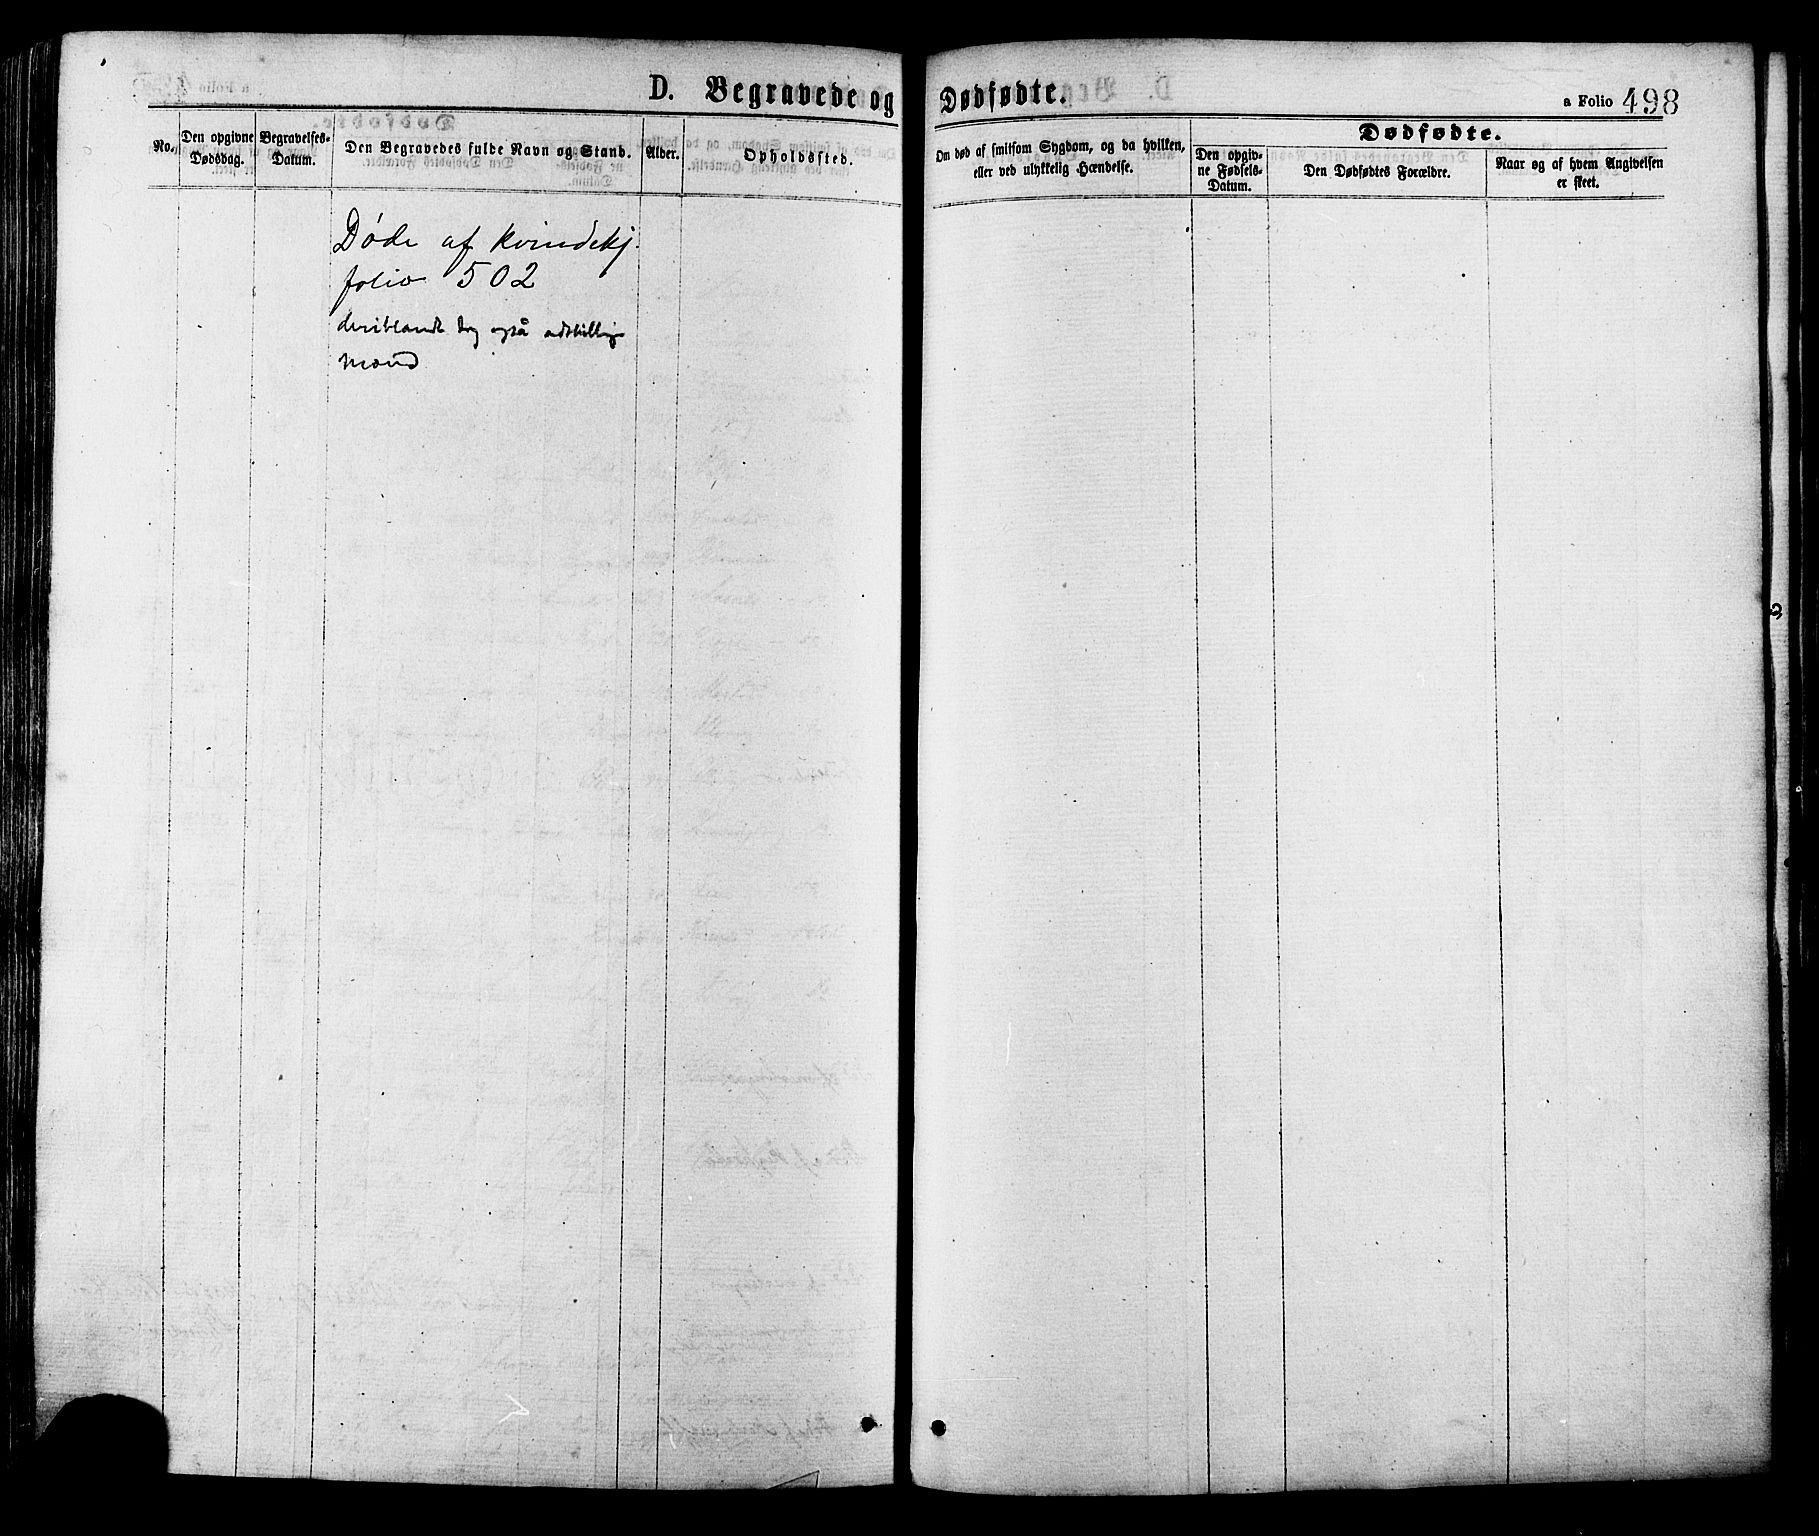 D. Begravede og Dødfødte.
a Folio 498
No.
Den opgivne Dødsdag.
Begravelses-Datum.
Den Begravedes fulde Navn og Stand.
Alder.
Opholdssted.
Om død af smitsom Sygdom, og da hvilken,
eller ved ulykkelig Hændelse.
Dødfødte.
Den opgiv-
ne Fødsels-
Datum.
Den Dødfødtes Forældre.
Naar og af hvem Angivelsen
er skeet.
Døde af kvindekj.
folio 502
deriblandt også adskillige
mænd